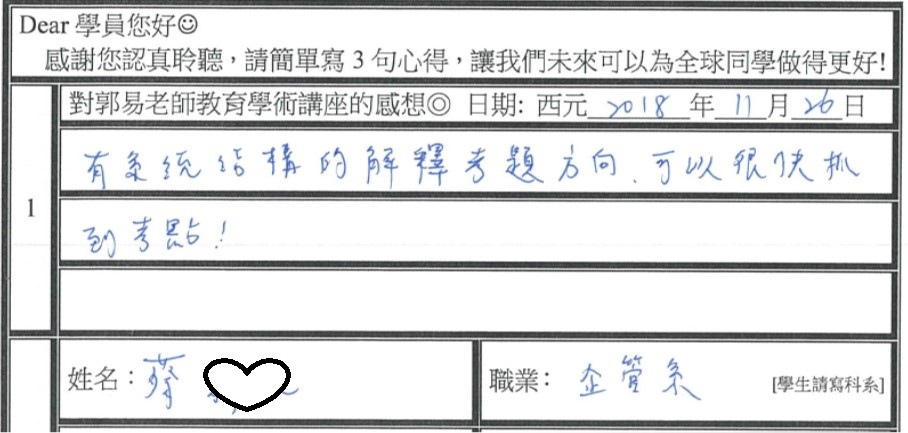 Dear 學員您好☺
感謝您認真聆聽，請簡單寫 3 句心得，讓我們未來可以為全球同學做得更好!
1
對郭易老師教育學術講座的感想◎ 日期: 西元 2018 年 11 月 26 日
有系統結構的解釋考題方向、可以很快抓
到考點！
姓名：蔡
職業： 企管系 [學生請寫科系]